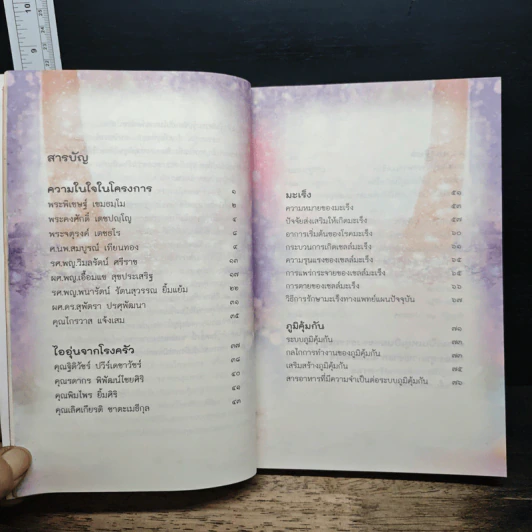 10
9
สารบัญ
ความในใจในโครงการ ๑
พระพิเชษฐ์ เขมธมฺโม ๒
พระคงศักดิ์ เตชปญฺโญ ๔
พระจตุรงค์ เตชธโร ๘
ศ.นพ.สมบูรณ์ เทียนทอง
รศ.พญ.วิมลรัตน์ ศรีราช ๑๓
ผศ.พญ.เอื้อมแข สุขประเสริฐ ๑๗
รศ.พญ.พนารัตน์ รัตนสุวรรณ ยิ้มแย้ม ๒๒
ผศ.ดร.สุพัตรา ปรศุพัฒนา ๓๑
คุณไกรวาส แจ้งเสม ๓๕
ไออุ่นจากโรงครัว ๓๗
คุณฐิติวัชร์ ปวีร์เดชาวัชร์ ๓๘
คุณรดากร พิพัฒน์ไชยศิริ ๔๐
คุณพิมไพร ยิ้มศิริ ๔๘
คุณเลิศเกียรติ ชาตะเมธีกุล ๔๓
มะเร็ง ๕๑
ความหมายของมะเร็ง ๕๓
ปัจจัยส่งเสริมให้เกิดมะเร็ง ๕๗
อาการเริ่มต้นของโรคมะเร็ง ๖๐
กระบวนการเกิดเซลล์มะเร็ง ๖๒
ความรุนแรงของเซลล์มะเร็ง ๖๔
การแพร่กระจายของเซลล์มะเร็ง ๖๕
การตายของเซลล์มะเร็ง ๖๖
วิธีการรักษามะเร็งทางแพทย์แผนปัจจุบัน ๖๗
ภูมิคุ้มกัน ๗๑
ระบบภูมิคุ้มกัน ๗๒
กลไกการทำงานของภูมิคุ้มกัน ๗๓
เสริมสร้างภูมิคุ้มกัน ๗๕
สารอาหารที่มีความจำเป็นต่อระบบภูมิคุ้มกัน ๗๖